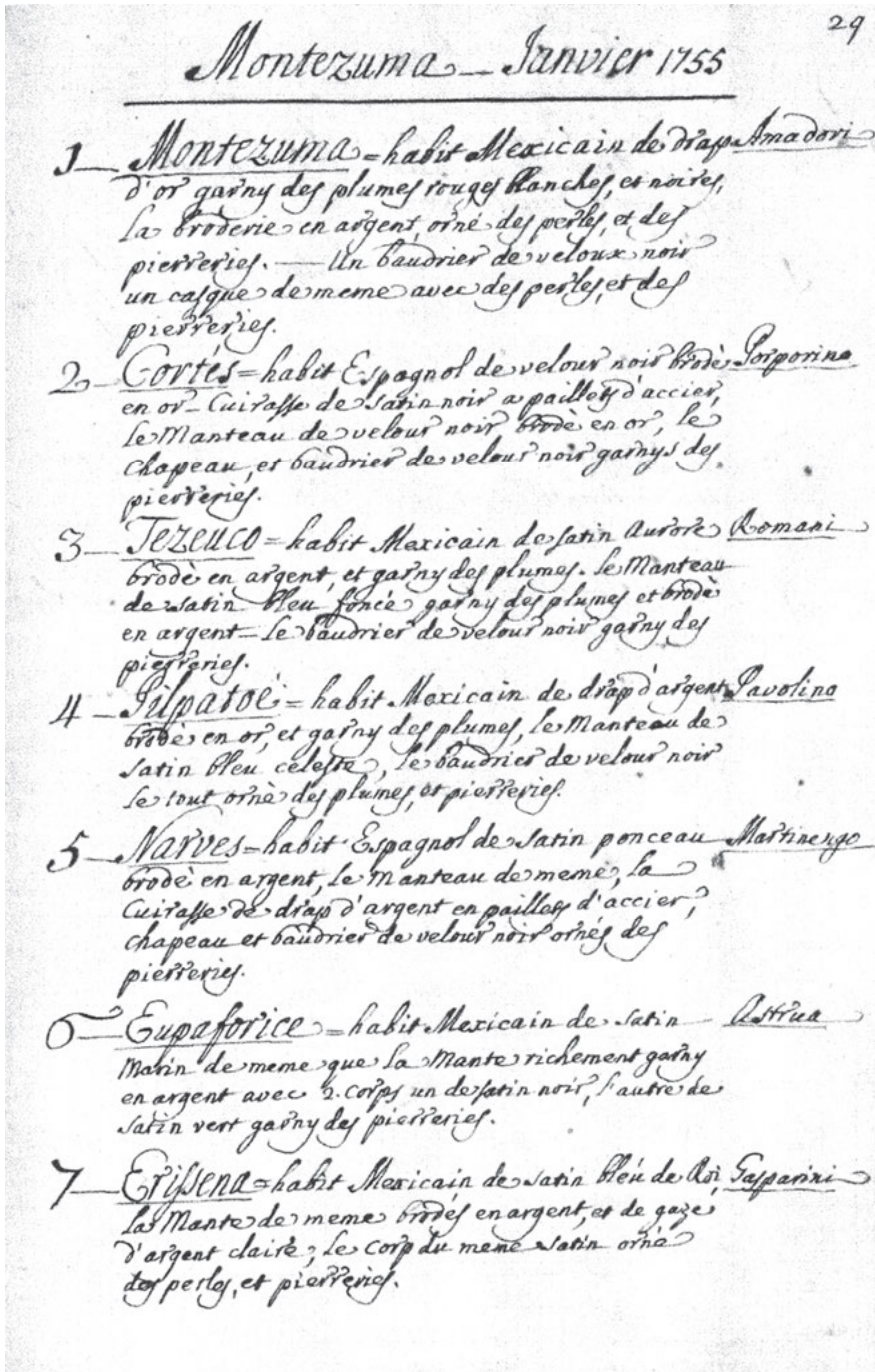 29
Montezuma — Janvier 1755
1 — Montezuma = habit Mexicain de drap Amadori
d'or garny des plumes rouges blanches, et noires,
la broderie en argent, orné des perles, et des
pierreries. — Un baudrier de veloux noir
un casque de meme avec des perles, et des
pierreries.
2 — Cortés = habit Espagnol de velour noir brodè Porporino
en or — Cuirasse de satin noir a paillets d'accier,
le Manteau de velour noir brodè en or, le
chapeau, et baudrier de velour noir garnys des
pierreries.
3 — Tezeuco = habit Mexicain de satin Aurore Romani
brodè en argent, et garny des plumes. le Manteau
de satin bleu foncé garny des plumes et brodè
en argent — le baudrier de velour noir garny des
pierreries.
4 — Pilpatoé = habit Mexicain de drap d'argent Pavolino
brodè en or, et garny des plumes, le Manteau de
satin bleu celeste, le baudrier de velour noir
le tout ornè des plumes, et pierreries.
5 — Narves = habit Espagnol de satin ponceau Martinengo
brodè en argent, le manteau de meme, la
Cuirasse de drap d'argent en paillets d'accier,
chapeau et baudrier de velour noir ornés des
pierreries.
6 — Eupaforice = habit Mexicain de satin — Astrua
Marin de meme que la Mante richement garny
en argent avec 2. corps un de satin noir, l'autre de
satin vert garny des pierreries.
7 — Erissena = habit Mexicain de satin bléu de Roi Gasparini
la Mante de meme brodés en argent, et de gaze
d'argent claire, le Corp du meme satin orné
des perles, et pierreries.